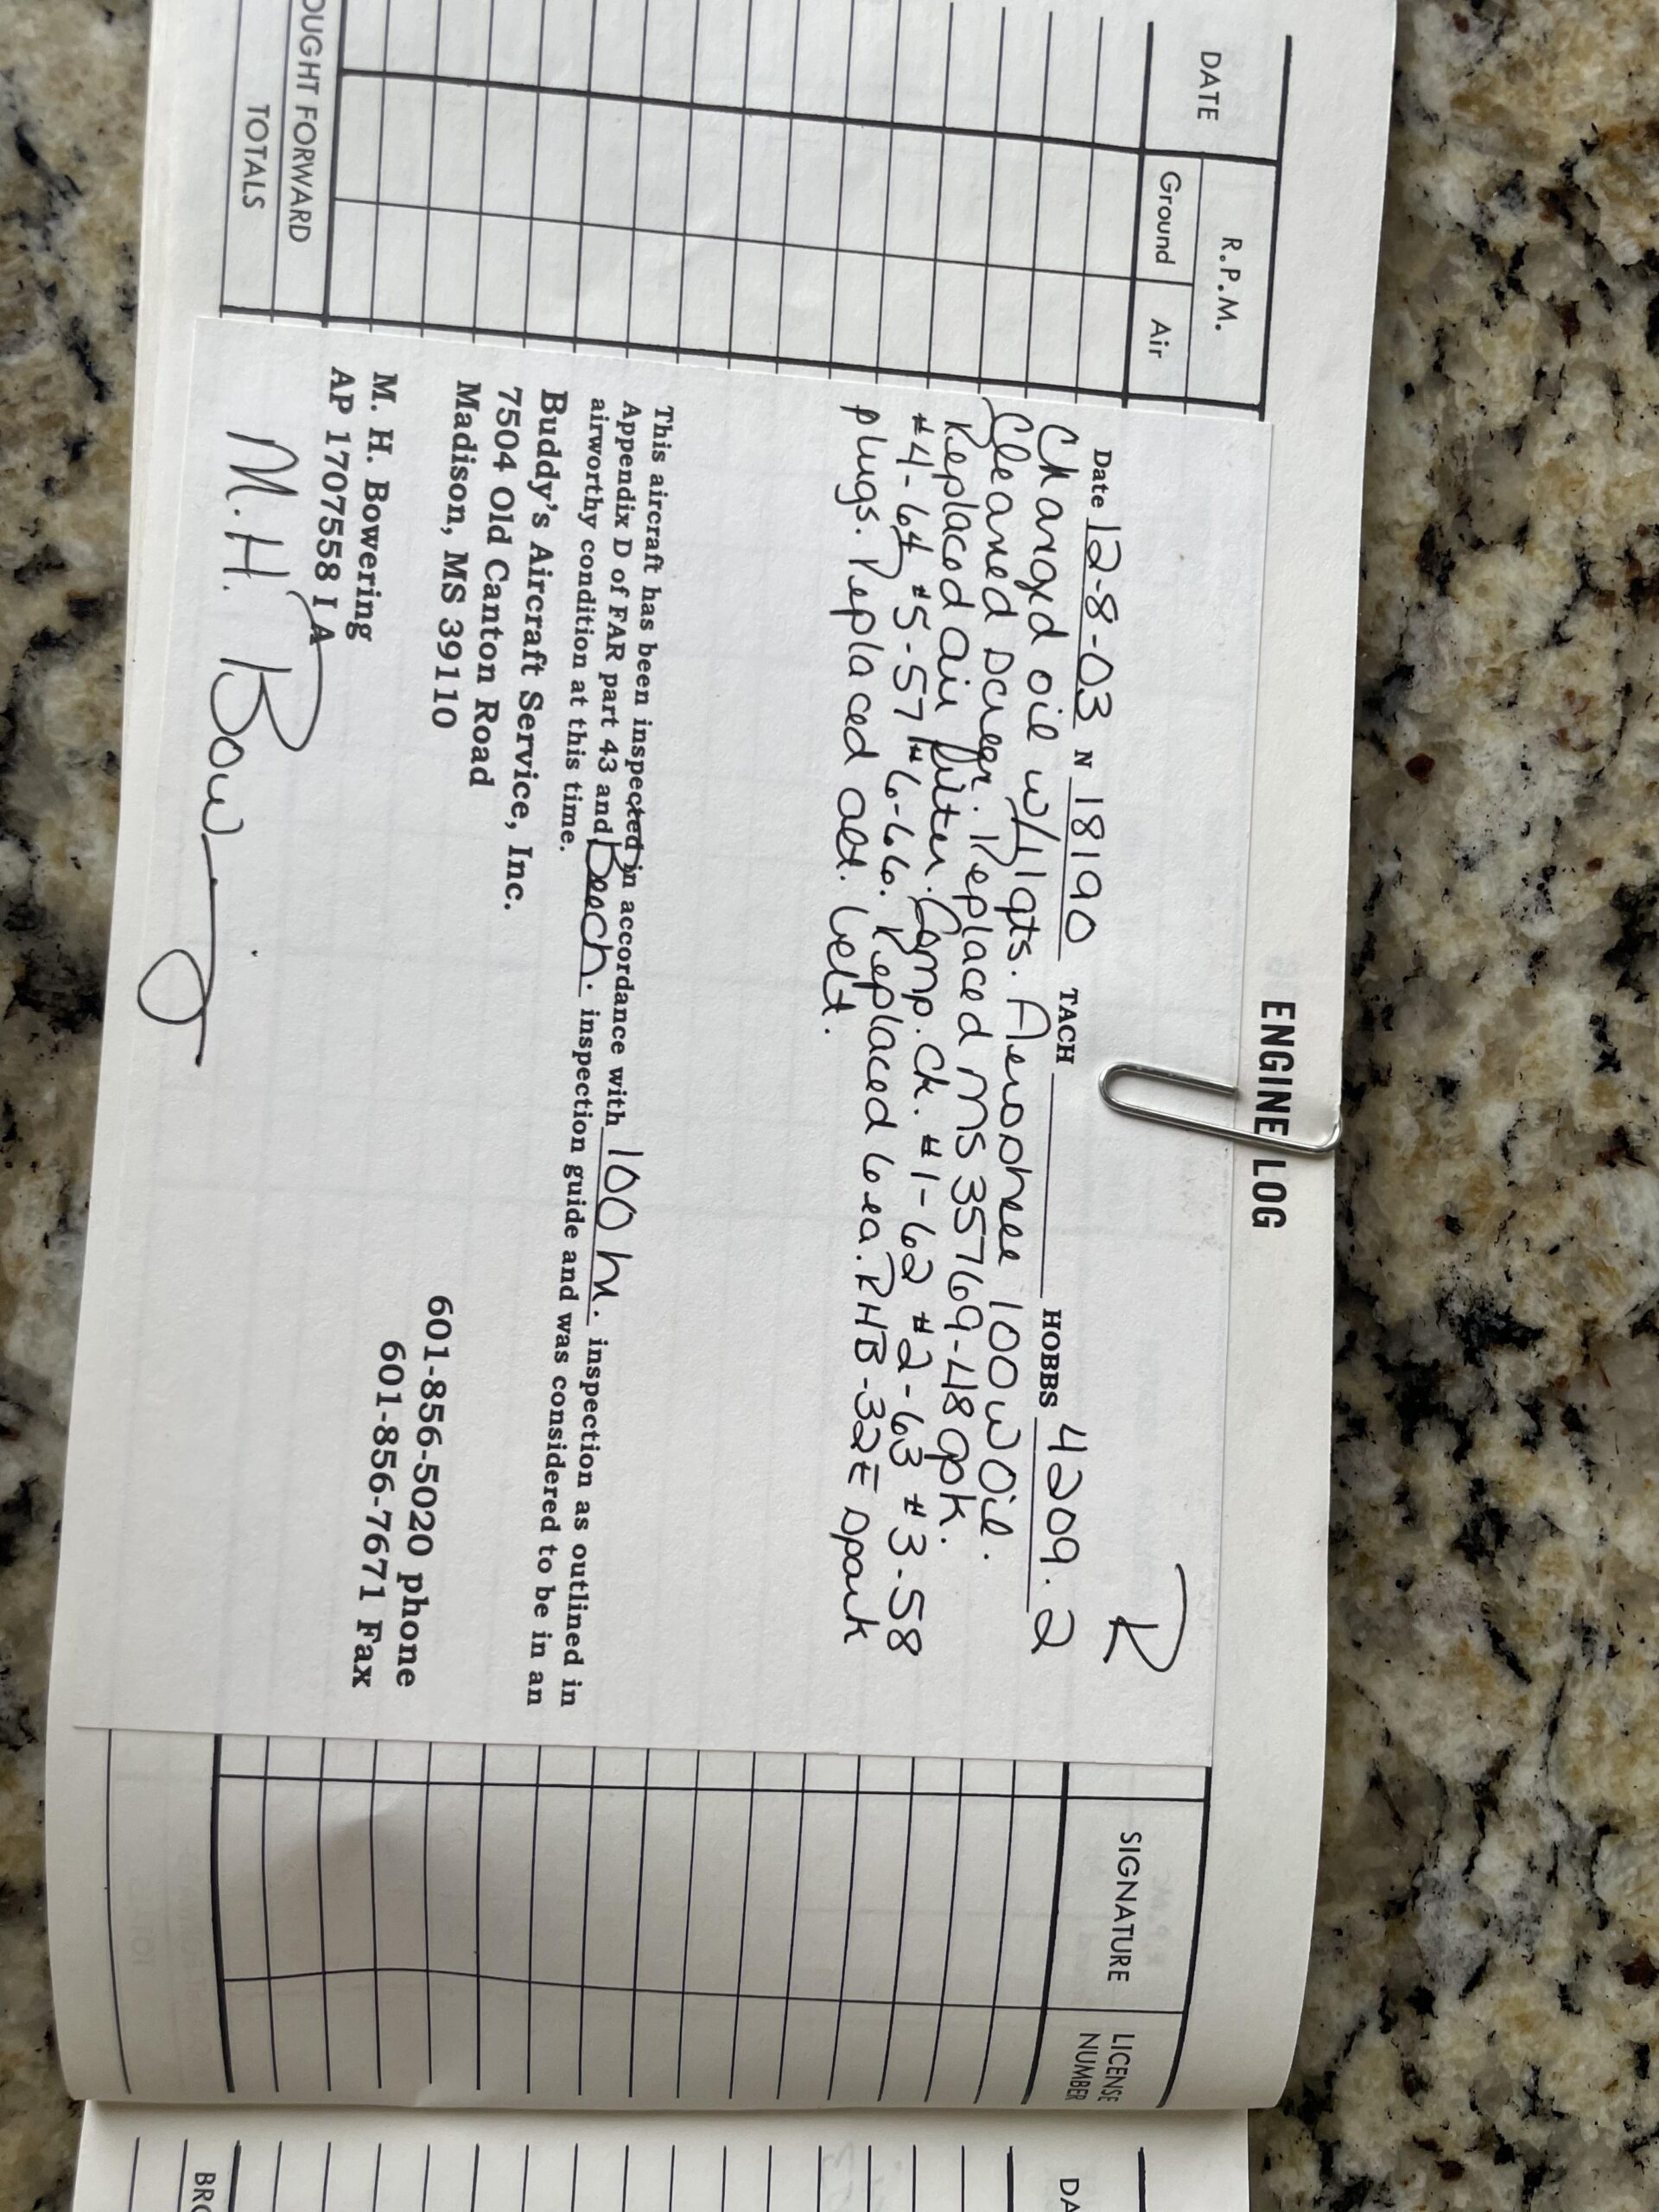 ENGINE LOG
R
DATE
R.P.M.
Ground
Air
Date 12-8-03 N 18190 TACH HOBBS 4209.2
Changed oil w/11qts. Aeroshell 100W Oil.
Cleaned screen. Replaced MS35769-48 gpk.
Replaced air filter. Comp. Ck. #1-62 #2-63 #3-58
#4-64 #5-57 #6-66. Replaced 6 ea. RHB-32E spark
plugs. Replaced alt. belt.
This aircraft has been inspected in accordance with 100 hr. inspection as outlined in
Appendix D of FAR part 43 and Beech. inspection guide and was considered to be in an
airworthy condition at this time.
Buddy's Aircraft Service, Inc.
7504 Old Canton Road
Madison, MS 39110
601-856-5020 phone
601-856-7671 Fax
M. H. Bowering
AP 1707558 IA
M. H. Bowering
OUGHT FORWARD
TOTALS
SIGNATURE
LICENSE
NUMBER
DA
BRO